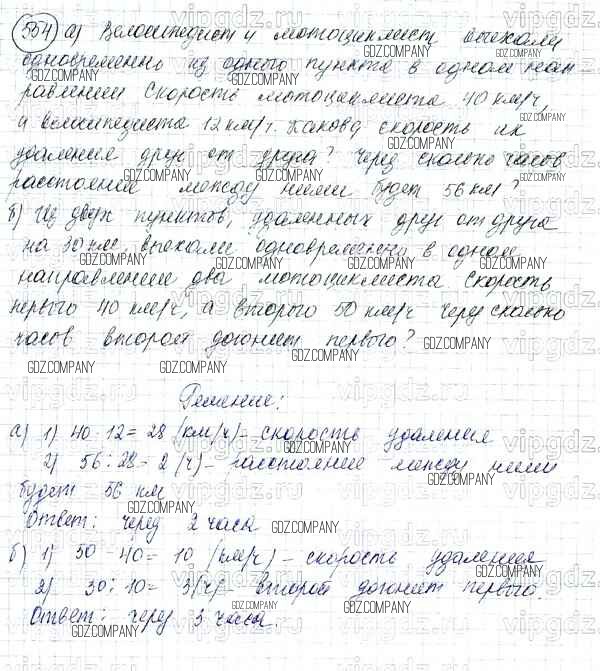 554 а) Велосипедист и мотоциклист выехали
одновременно из одного пункта в одном нап-
равлении Скорость мотоциклиста 40 км/ч,
и велосипедиста 12 км/ч. Какова скорость их
удаления друг от друга? Через сколько часов
расстояние между ними будет 56 км?
б) Из двух пунктов, удаленных друг от друга
на 30 км, выехали одновременно в одном
направлении два мотоциклиста. Скорость
первого 40 км/ч, а второго 50 км/ч через сколько
часов второй догонит первого?
Решение:
а) 1) 40-12=28 (км/ч) - скорость удаления
2) 56:28=2 (ч) - расстояние между ними
будет 56 км
Ответ: через 2 часа
б) 1) 50-40= 10 (км/ч) - скорость удаления
2) 30:10= 3(ч) - второй догонит первого.
Ответ: через 3 часа.